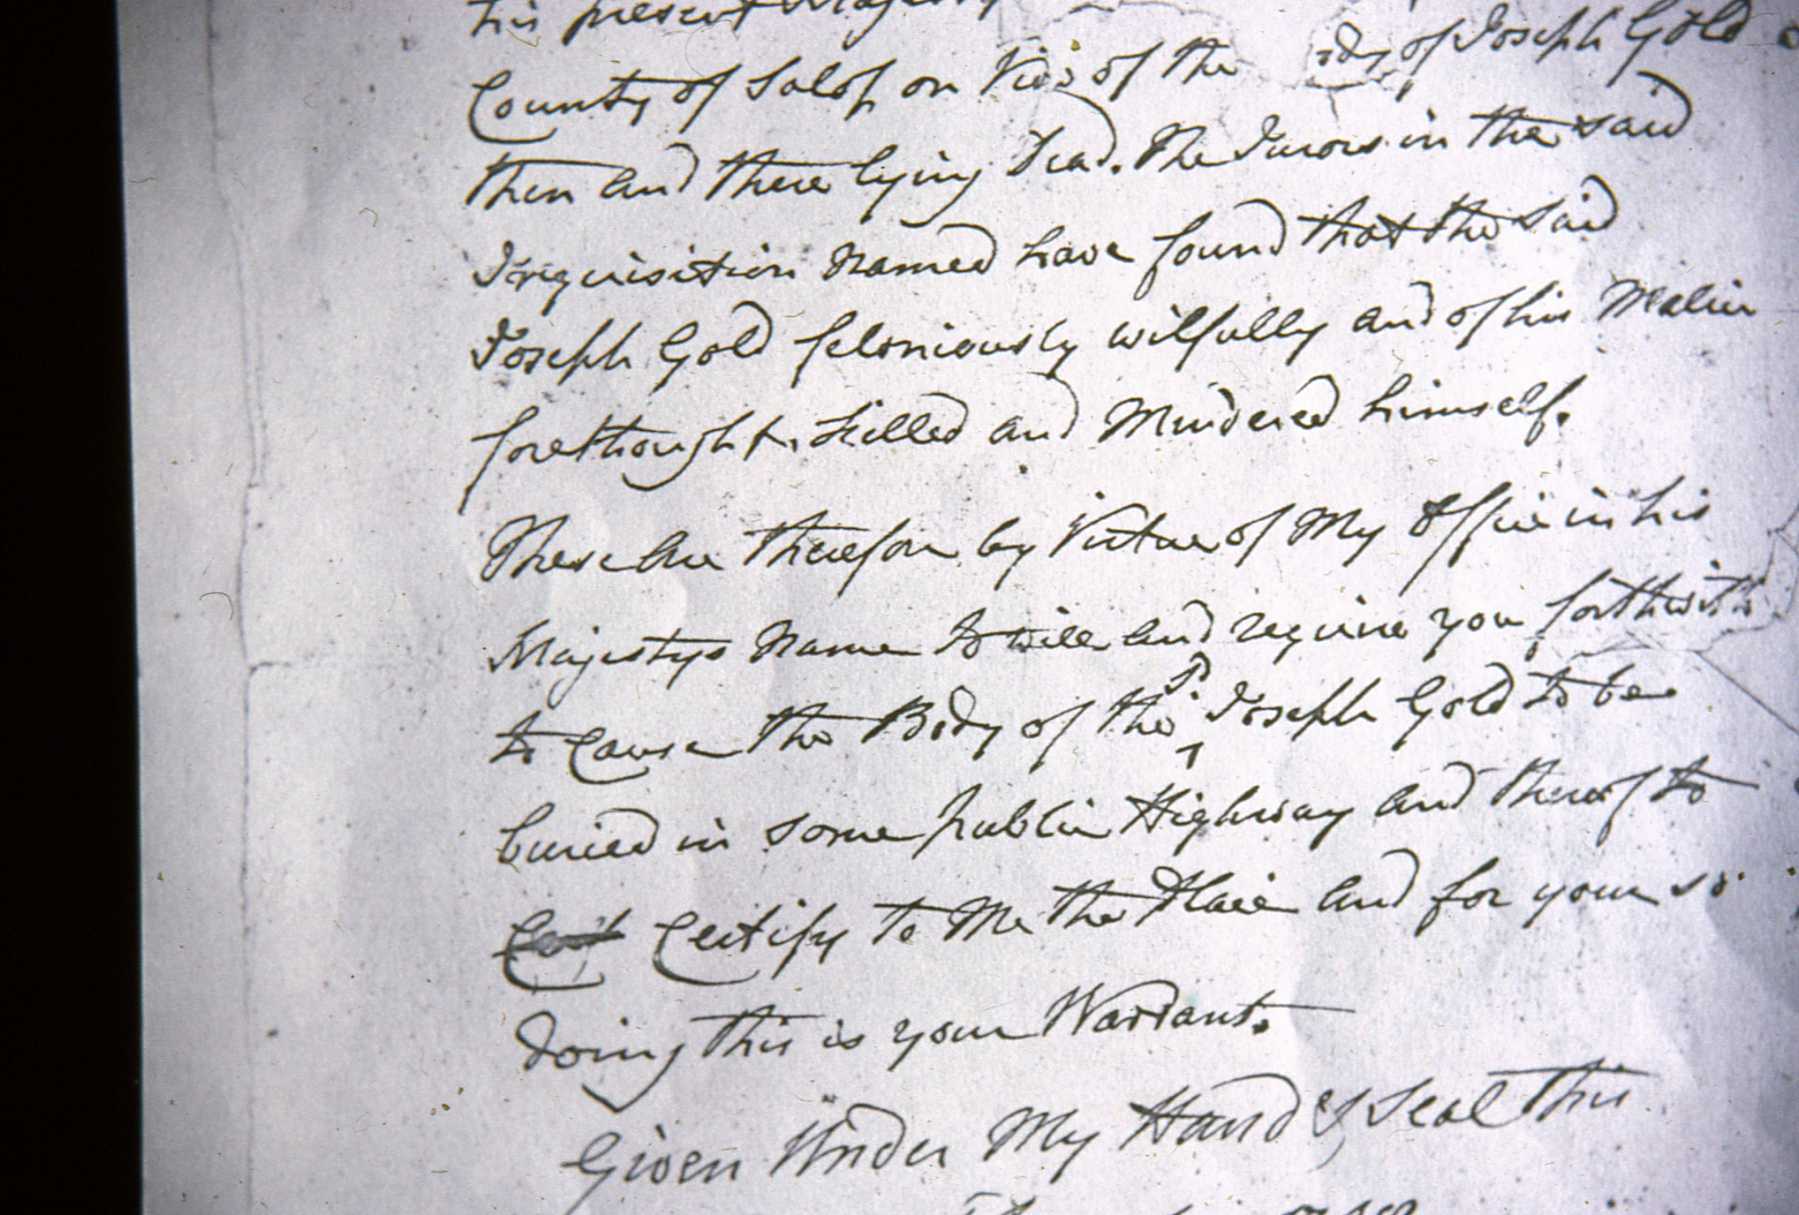 his present Majesty
County of Salop on View of the ody of Joseph Gold
then and there lying Dead. The Jurors in the said
Inquisition Named have found that the said
Joseph Gold feloniously wilfully and of his Malice
forethought killed and Murdered himself.
These are therefore by Virtue of My Office in his
Majestys Name to will and require you forthwith
to Cause the Body of the sd. Joseph Gold to be
buried in some public Highway and thereof to
Certify to Me the Place and for your so
doing this is your Warrant.
Given Under My Hand & Seal this